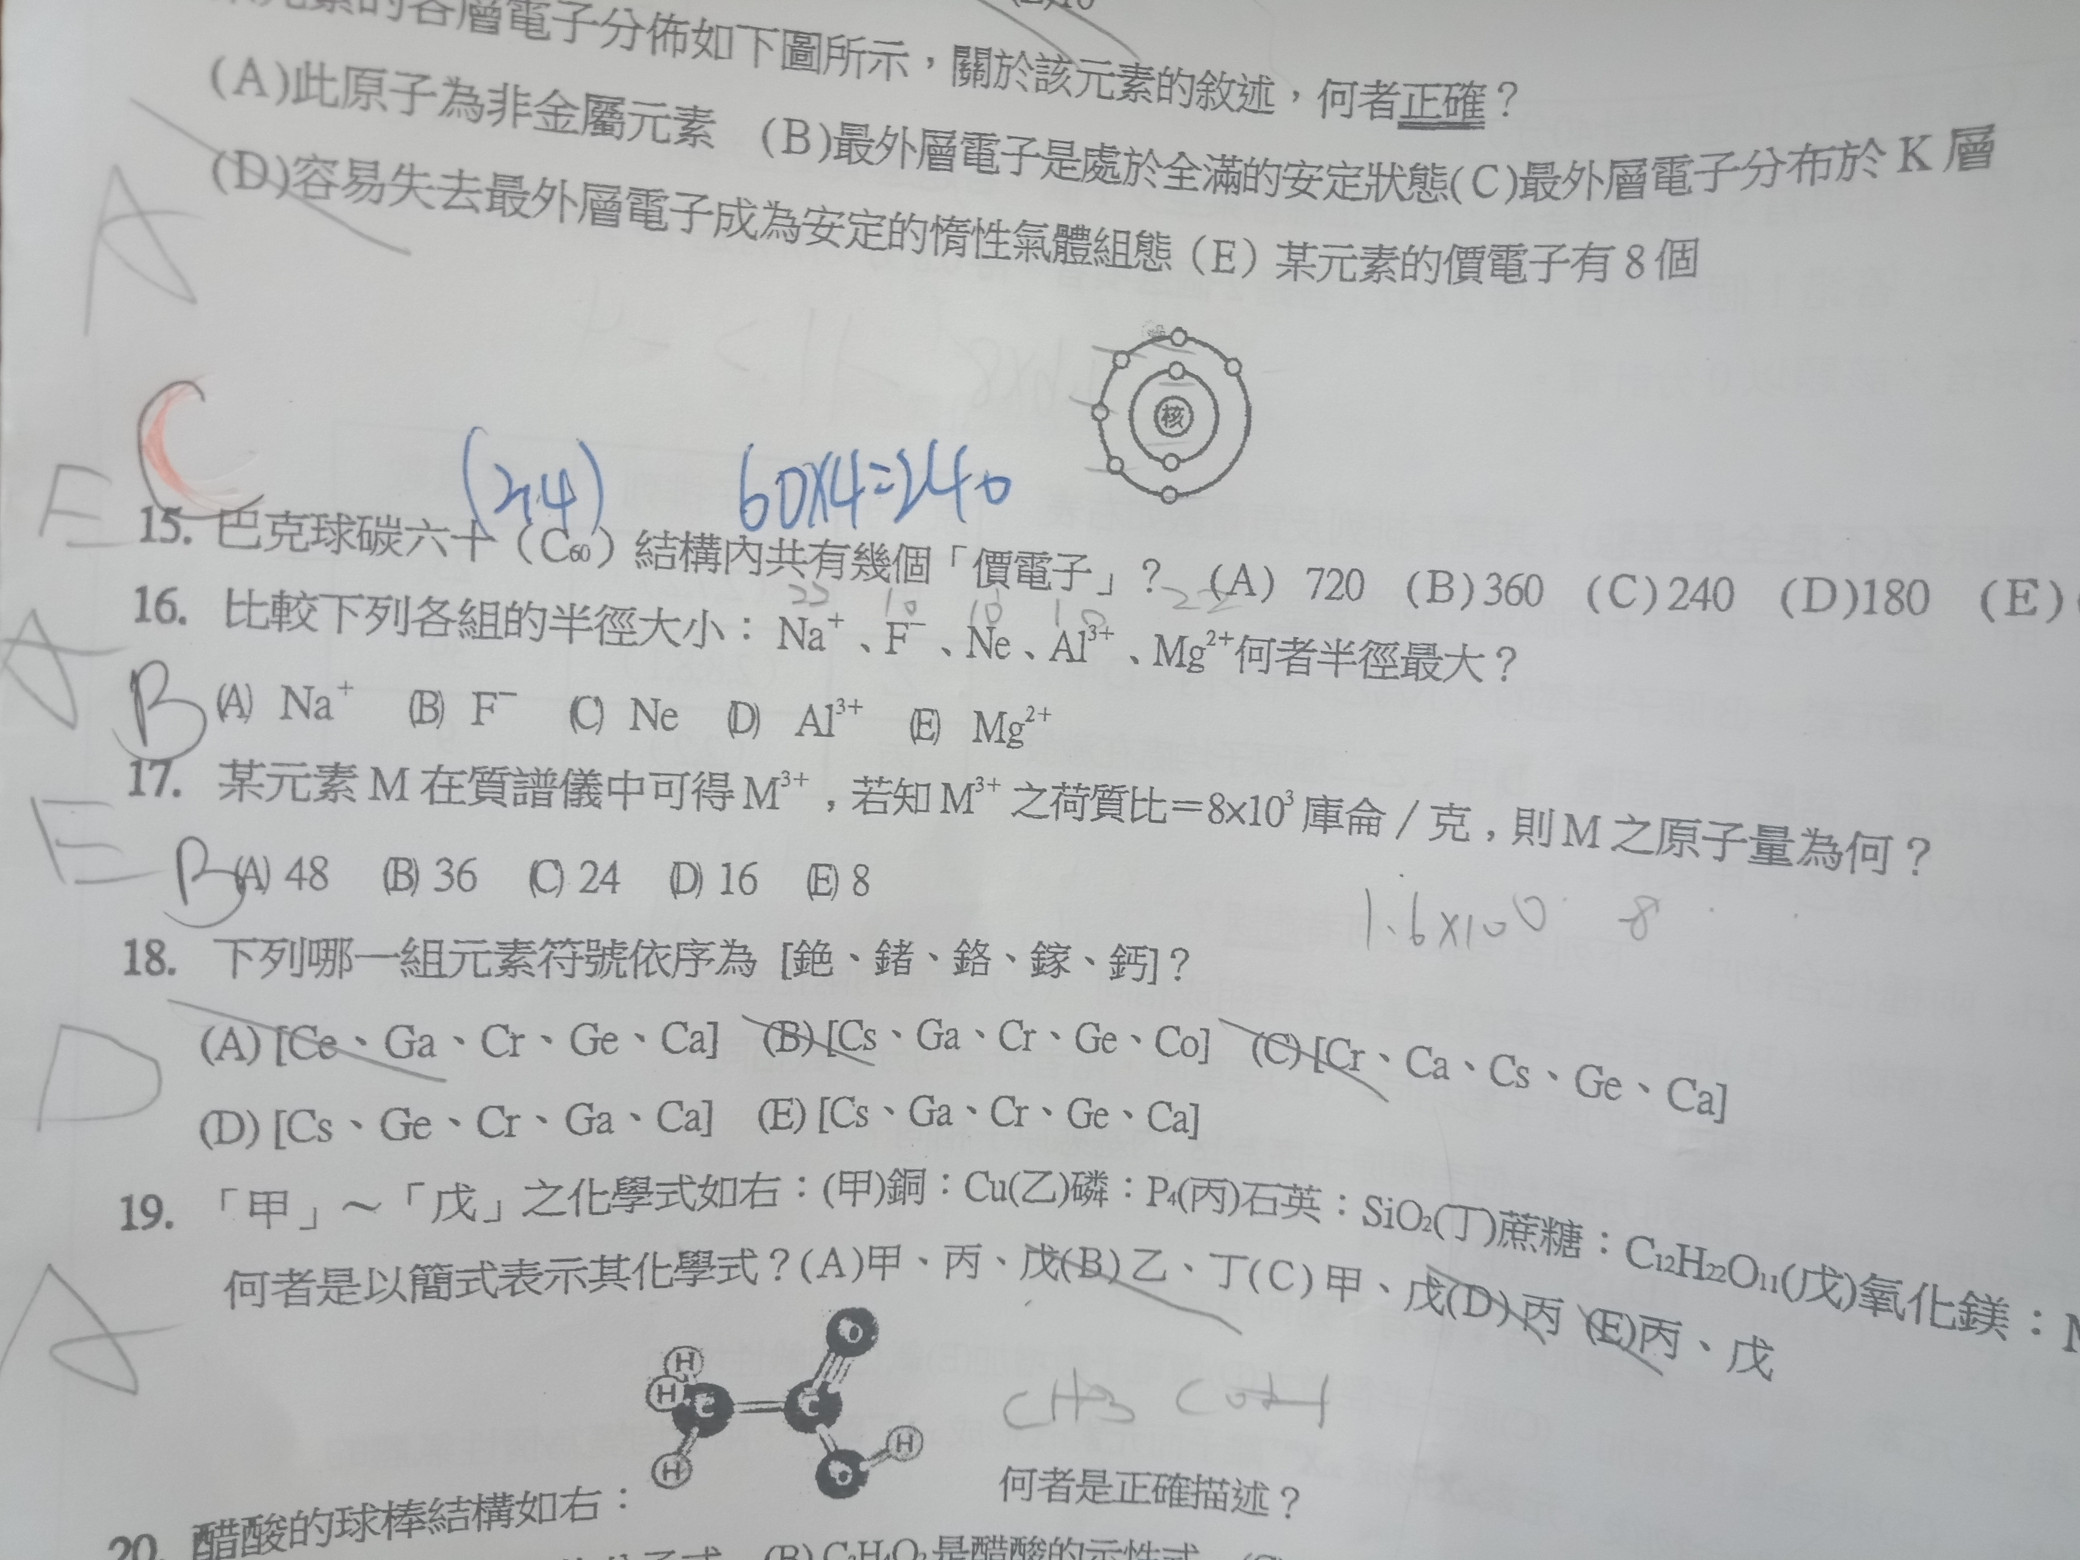 元素的各層電子分佈如下圖所示，關於該元素的敘述，何者正確？
(A)此原子為非金屬元素 (B)最外層電子是處於全滿的安定狀態(C)最外層電子分布於 K 層
(D)容易失去最外層電子成為安定的惰性氣體組態（E）某元素的價電子有 8 個
A
核
C
(2,4) 60×4=240
E
15. 巴克球碳六十（C₆₀）結構內共有幾個「價電子」? (A) 720 (B)360 (C)240 (D)180 (E)
10 10 22
16. 比較下列各組的半徑大小：Na⁺、F⁻、Ne、Al³⁺、Mg²⁺何者半徑最大？
A
B
(A) Na⁺ (B) F⁻ (C) Ne (D) Al³⁺ (E) Mg²⁺
17. 某元素 M 在質譜儀中可得 M³⁺，若知 M³⁺ 之荷質比＝8x10³ 庫侖／克，則 M 之原子量為何？
E
B
(A) 48 (B) 36 (C) 24 (D) 16 (E) 8
1.6×100 8
18. 下列哪一組元素符號依序為 [銫、鍺、鉻、鎵、鈣]？
(A) [Ce、Ga、Cr、Ge、Ca] (B) [Cs、Ga、Cr、Ge、Co] (C) [Cr、Ca、Cs、Ge、Ca]
D
(D) [Cs、Ge、Cr、Ga、Ca] (E) [Cs、Ga、Cr、Ge、Ca]
19. 「甲」～「戊」之化學式如右：(甲)銅：Cu(乙)磷：P₄(丙)石英：SiO₂(丁)蔗糖：C₁₂H₂₂O₁₁(戊)氧化鎂：M
何者是以簡式表示其化學式？(A)甲、丙、戊(B)乙、丁(C)甲、戊(D)丙 (E)丙、戊
A
H H C C O O H H
CH3 COOH
20. 醋酸的球棒結構如右： 何者是正確描述？
(B) C₂H₄O₂是醋酸的示性式